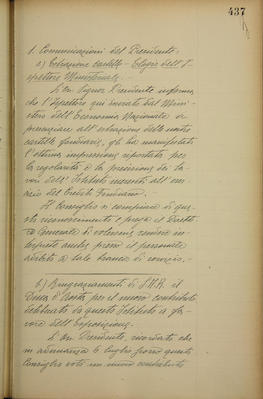 437
1. Comunicazioni del Presidente:
a) Estrazione cartelle - Elogio dell'I-
spettore Ministeriale.
L'On. Signor Presidente informa
che l'Ispettore qui inviato dal Mini-
stero dell'Economia Nazionale a
presenziare all'estrazione delle nostre
cartelle fondiarie, gli ha manifestato
l'ottima impressione riportata per
la regolarità e la precisione dei la-
vori dell'Istituto inerenti all'eser-
cizio del Credito Fondiario.
Il Consiglio si compiace di que-
sto riconoscimento e prega il Diretto-
re Generale di volersene rendere in-
terprete anche presso il personale
addetto a tale ramo di servizio.
b) Ringraziamenti di S.A.R. il
Duca d'Aosta per il nuovo contributo
deliberato da questo Istituto a fa-
vore dell'Esposizione.
L'On. Presidente, ricordato che
in adunanza 6 luglio questo
Consiglio votò un nuovo contributo